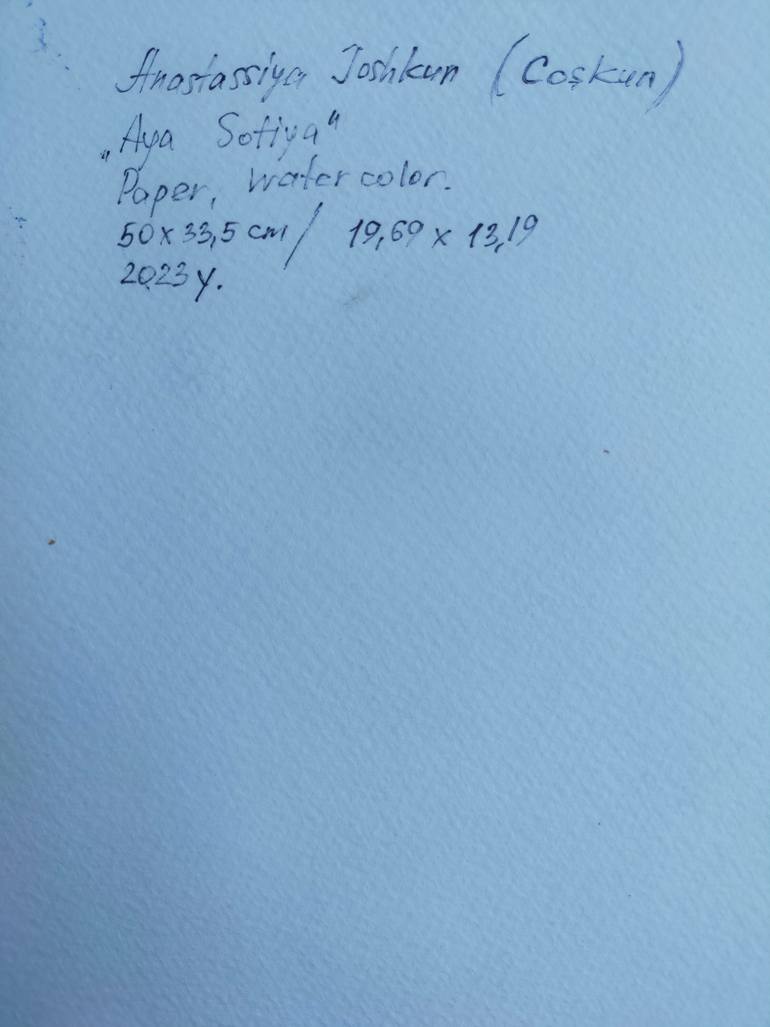 Anastassiya Joshkun (Coşkun)
„Aya Sofiya"
Paper, watercolor.
50x33,5 cm/ 19,69 x 13,19
2023 y.